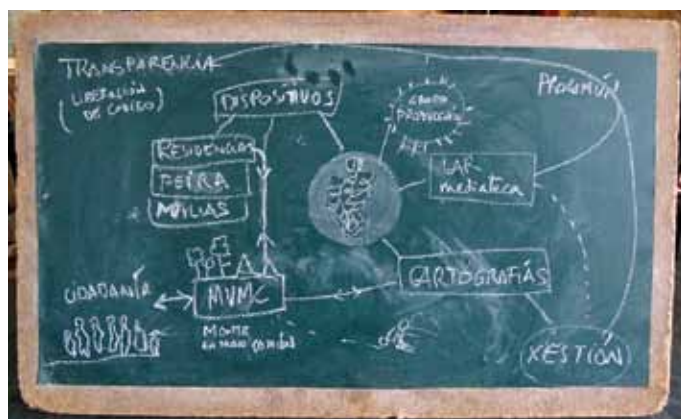 TRANSPARENCIA
(LIBERACIÓN
DE CODIGO)
DISPOSITIVOS
PROCOMÚN
GRUPO
PRODUCCIÓN
RESIDENCIAS
FEIRA
LAB
mediateca
CARTOGRAFÍAS
CIDADANÍA
MVMC
MONTE
(XESTIÓN)